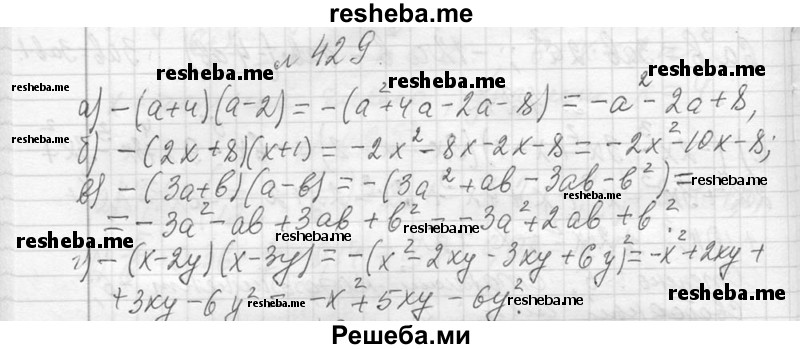 resheba.me
№ 429.
resheba.me
resheba.me
resheba.me
resheba.me
а) -(a+4)(a-2) = -(a²+4a-2a-8) = -a²-2a+8,
resheba.me
б) -(2x+8)(x+1) = -2x²-8x-2x-8 = -2x²-10x-8;
в) -(3a+b)(a-b) = -(3a²+ab-3ab-b²) =
resheba.me
= -3a²-ab+3ab+b² = -3a²+2ab+b².
resheba.me
resheba.me
resheba.me
resheba.me
г) -(x-2y)(x-3y) = -(x²-2xy-3xy+6y²) = -x²+2xy+
+3xy-6y² = -x²+5xy-6y².
resheba.me
resheba.me
resheba.me
Решеба.ми